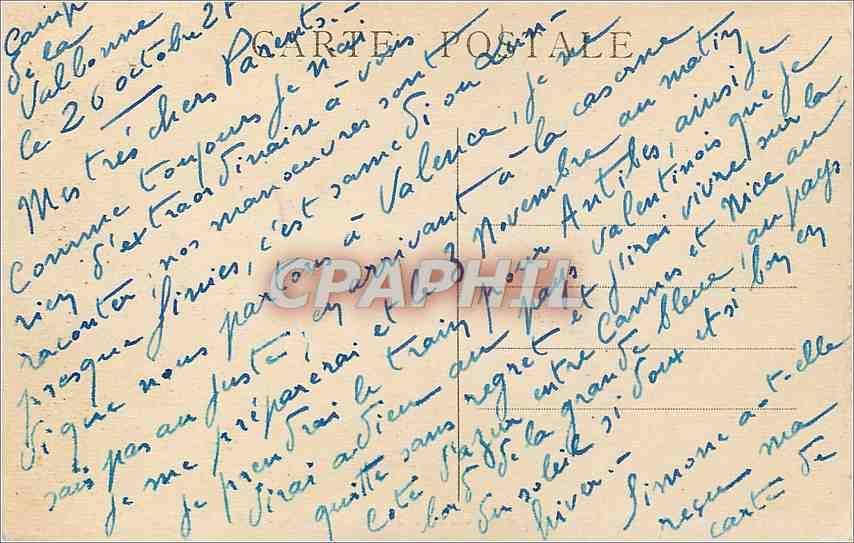 Camp
de la
Valbonne
le 26 octobre 2
CARTE POSTALE
Mes très chers Parents. -
Comme toujours je n'ai
rien d'extraordinaire à vous
raconter, nos manoeuvres sont
presque finies, c'est samedi ou Lun-
di que nous partons à Valence, je ne
sais pas au juste, en arrivant à la caserne
je me préparerai et le 3 Novembre au matin
je prendrai le train pour Antibes, ainsi je
dirai adieu au pays valentinois que je
quitte sans regret et j'irai vivre sur la
Cote d'azur entre Cannes et Nice au
bord de la grande bleue, au pays
du soleil si doux et si bon en
hiver. -
Simone a-t-elle
reçu ma
carte de
CPAPHIL